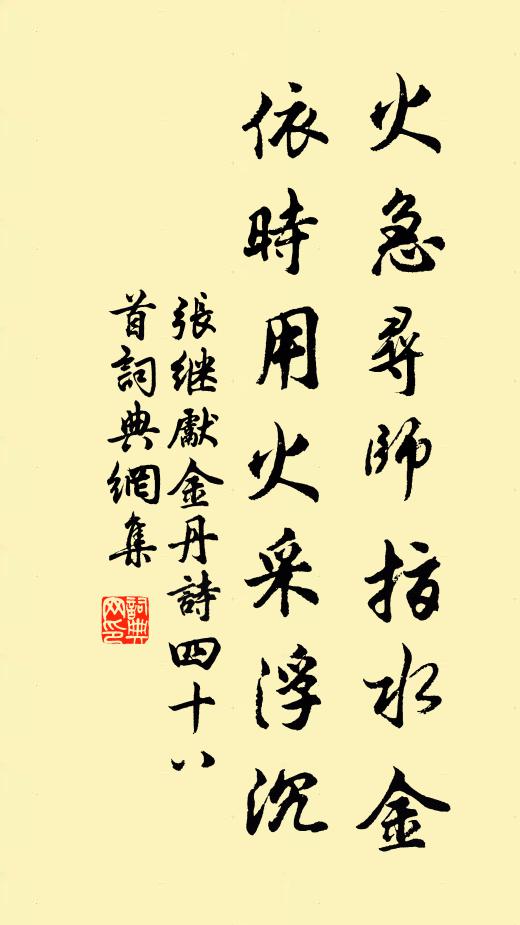 火急尋師指水金
依時用火采浮沉
張继獻金丹詩四十八
首詞典網集
詞典网印